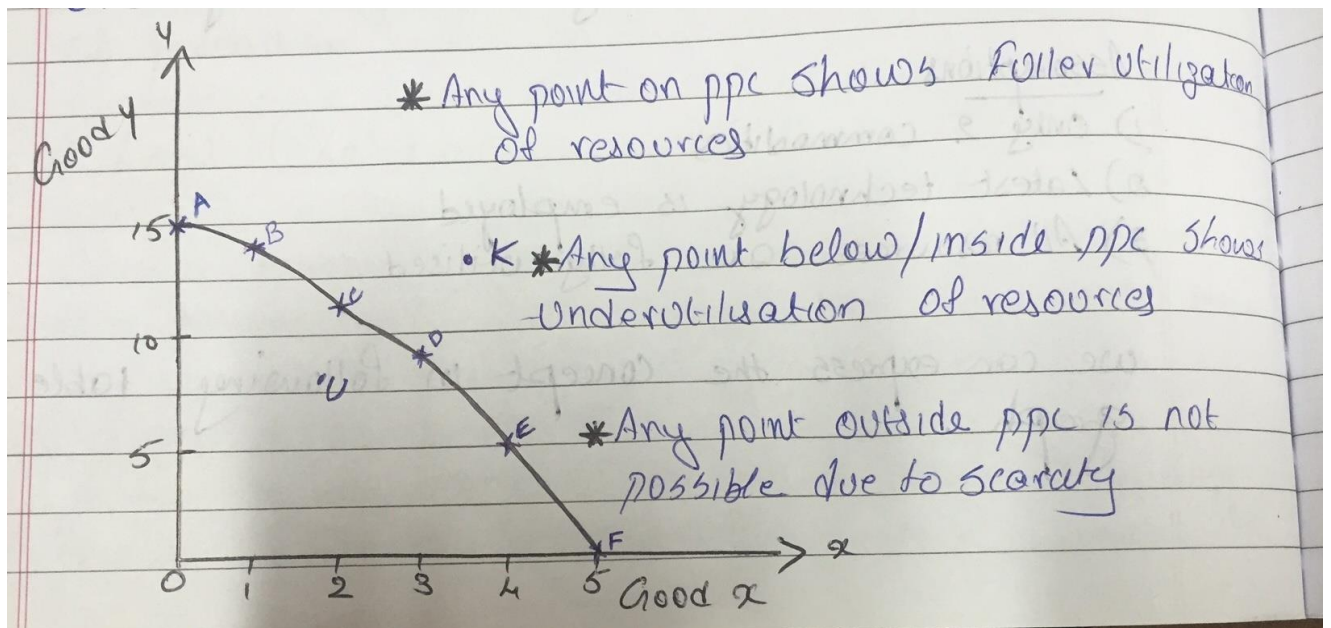 y
Good y
* Any point on ppc shows Fuller utilization
of resources
15 A
B
. K * Any point below/inside ppc shows
underutilisation of resources
C
10
D
U
E * Any point outside ppc is not
5
possible due to scaraty
F
x
0 1 2 3 4 5 Good x